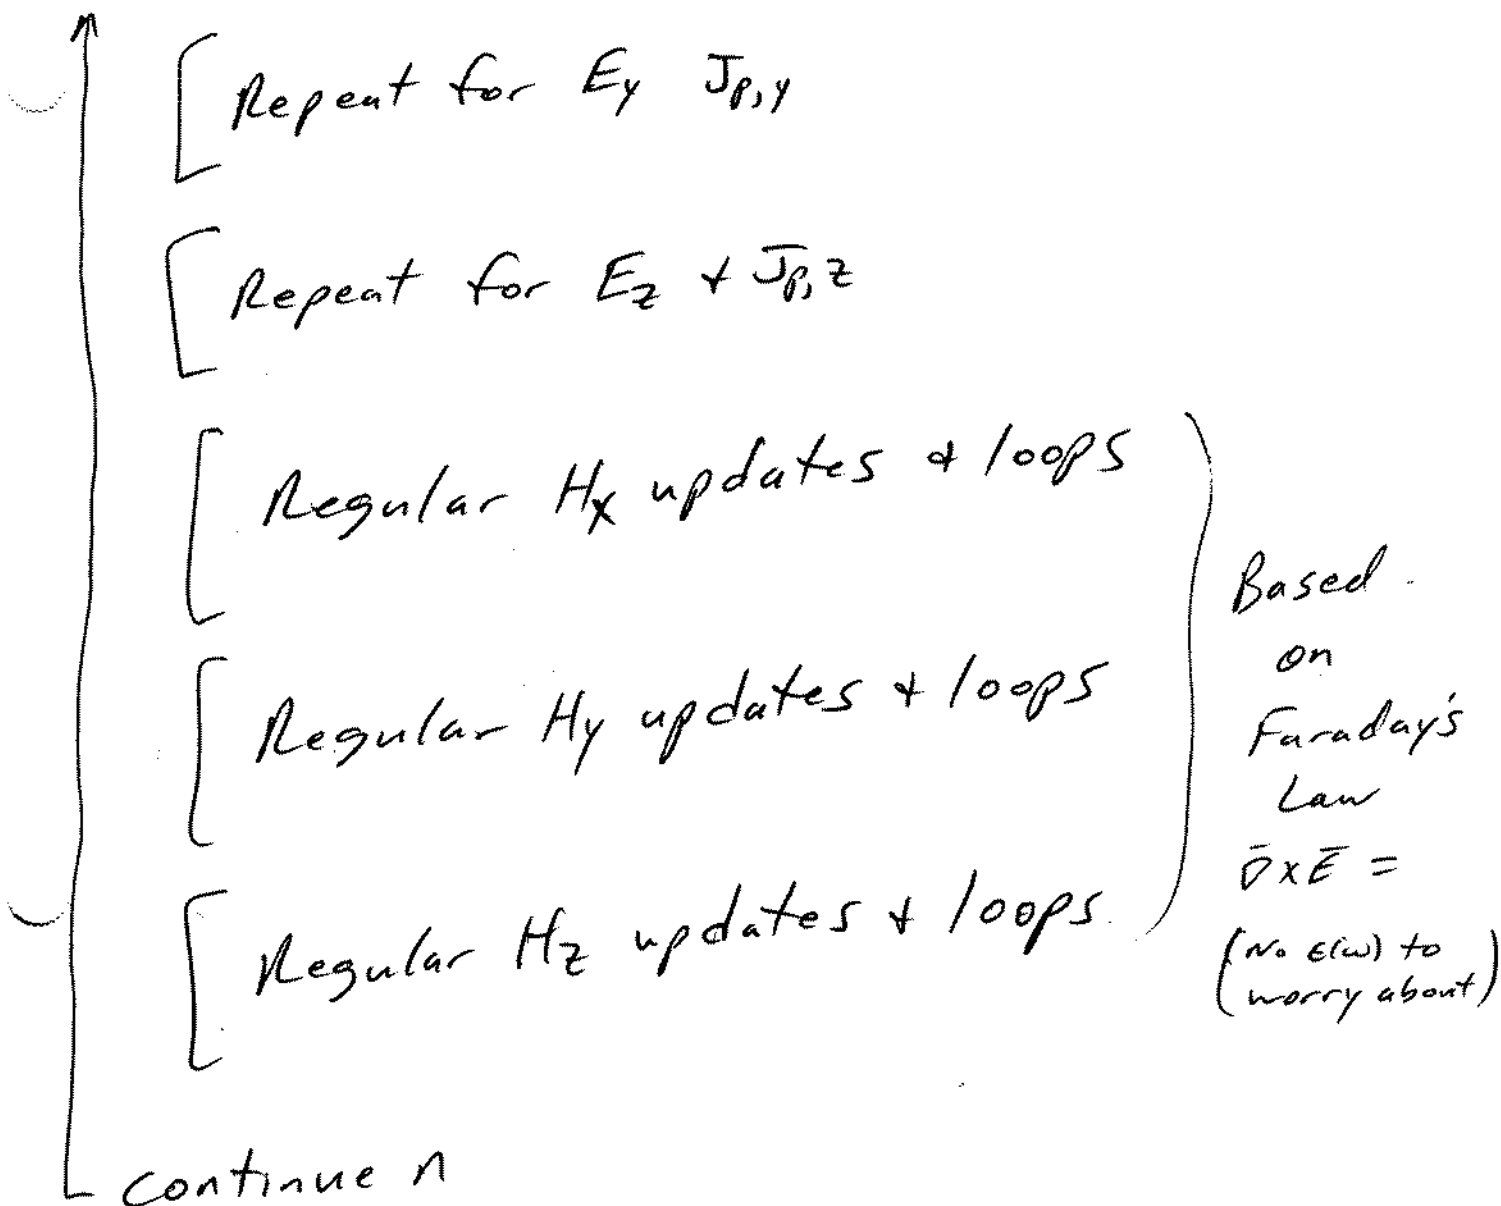 Repeat for Ey Jp,y
Repeat for Ez + Jp,z
Regular Hx updates + loops
Regular Hy updates + loops
Regular Hz updates + loops
Based
on
Faraday's
Law
∇̄ x Ē =
(No ε(ω) to
worry about)
continue n